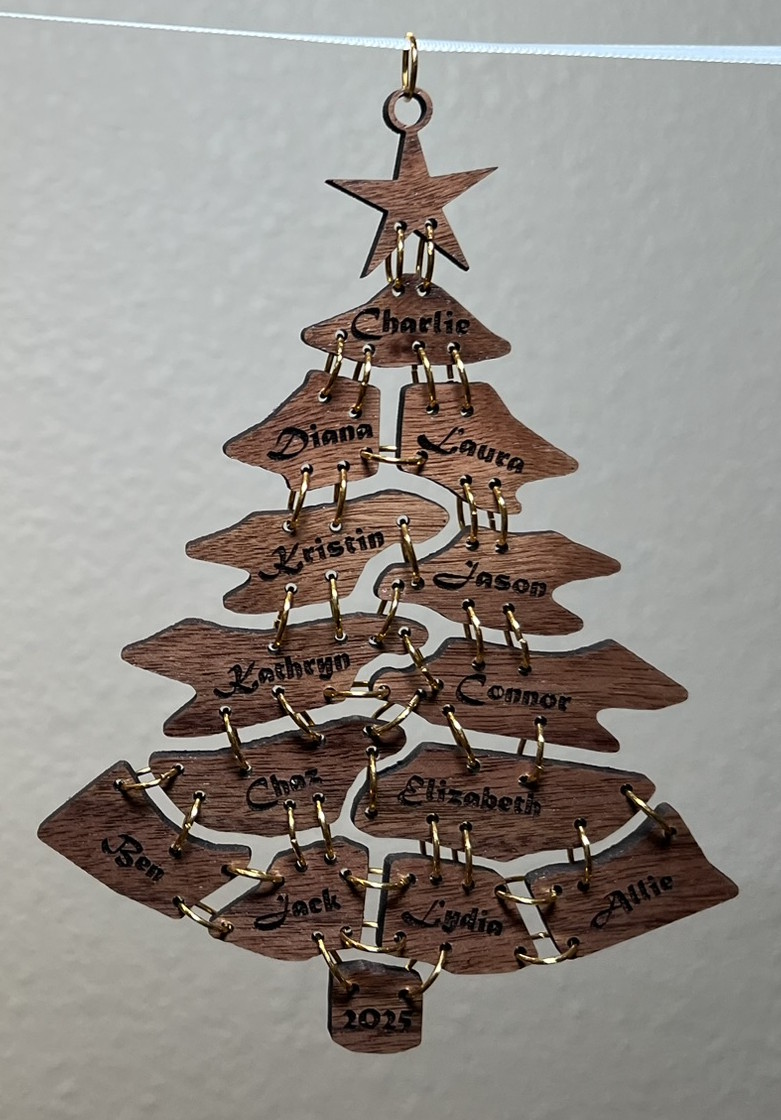 Charlie
Diana
Laura
Kristin
Jason
Kathryn
Connor
Chaz
Elizabeth
Ben
Jack
Lydia
Allie
2025